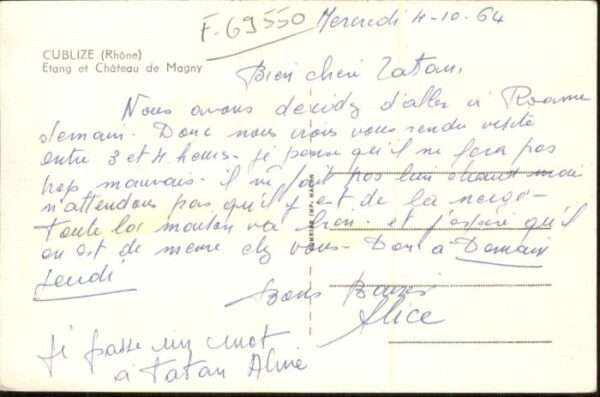 F-69550
Mercredi 4-10-64
CUBLIZE (Rhône)
Etang et Château de Magny
Bien chère Tatan,
Nous avons décidez d'aller à Roanne
demain. Donc nous irons vous rendre visite
entre 3 et 4 heures. je pense qu'il ne fera pas
trop mauvais. il ne fait pas bien chaud mais
n'attendons pas qu'il y est de la neige-
Toute la maison va bien. et j'espère qu'il
en est de meme chez vous. Donc à Demain
Jeudi
Bons Baisers
Alice
je passe un mot
à Tatan Aline